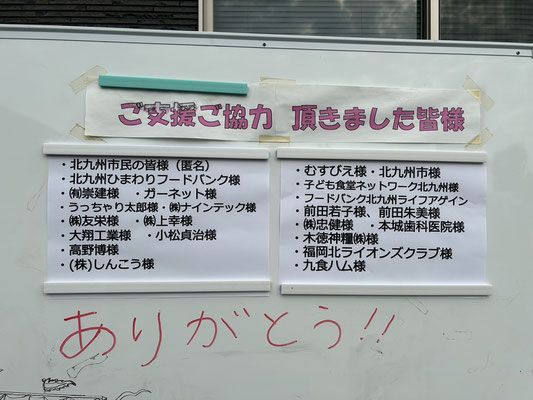 ご支援ご協力 頂きました皆様
・北九州市民の皆様（匿名）
・北九州ひまわりフードバンク様
・㈲崇建様 ・ガーネット様
・うっちゃり太郎様・㈱ナインテック様
・㈱友栄様 ・㈱上幸様
・大翔工業様 ・小松貞治様
・高野博様
・(株)しんこう様
・むすびえ様・北九州市様
・子ども食堂ネットワーク北九州様
・フードバンク北九州ライフアゲイン
・前田若子様、前田朱美様
・㈱忠健様 ・本城歯科医院様
・木徳神糧㈱様
・福岡北ライオンズクラブ様
・九食ハム様
ありがとう!!